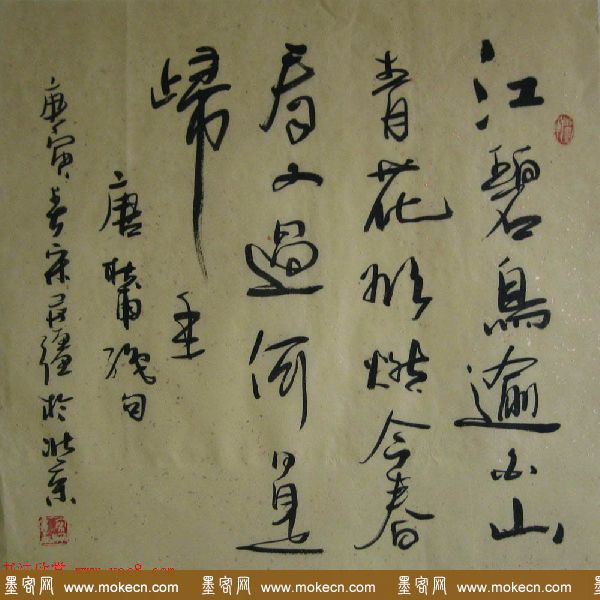 江碧鳥逾白山
青花欲燃今春
看又過何日是
歸年
唐 杜甫絕句
庚寅春宋疆於北京
墨客网 www.mokecn.com 墨客网 www.mokecn.com 墨客网 www.mokecn.com